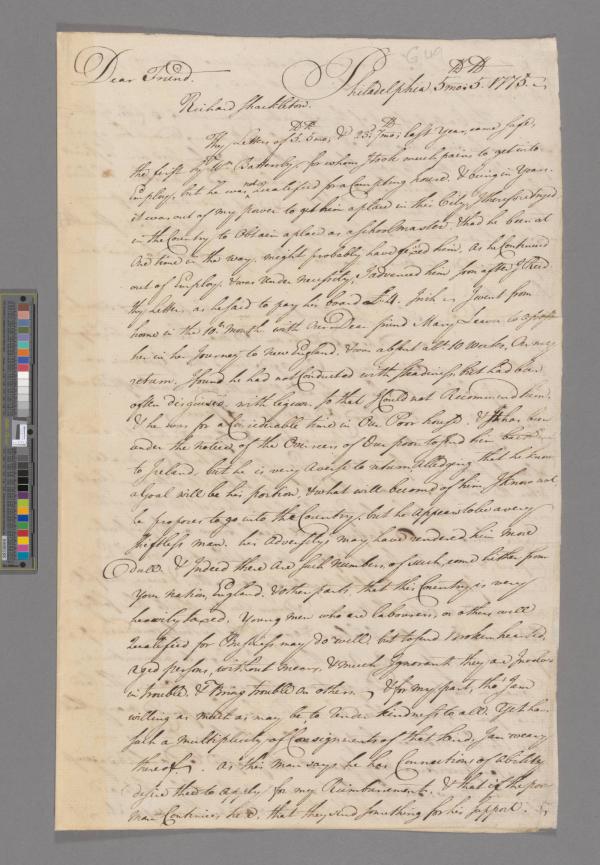 Dear Friend.
Philadelphia 5 mo: 5. 1775.
Richard Shackleton.
Thy Letters of 5. 5 mo; & 23. 7 mo; last Year, came safe,
the first by Wm Battersby for whom I took much pains to get into
Employ, but he was not Qualified for a Compting house, & being in Years
it was out of my power to get him a place in this City, I therefore tryed
in the Country to Obtain a place as a Schoolmaster, & had he been at
one time in the way, might probably have fixed him, as he Continued
out of Employ, & was under necessity, I advanced him soon after ye Rect
Thy Letter, as he said to pay his board £4. Irish I went from
home in the 10th Month with Our Dear friend Mary Leaver to
her in her Journey to New England, & was absent abt 10 weeks, On my
return, I found he had not Conducted with steadiness but had been
often disguised with liquor, so that I Could not Recommend him,
& he was for a Considerable time in Our Poor house, & has been
under the notice of the Overseers of Our poor to send him back
to Ireland, but he is very Averse to return alledging that he knows
a Goal will be his portion, & what will become of him I know not
he proposes to go into the Country, but he Appears to be a very
shiftless man, his Adversitys may have rendered him more
dull & Indeed there Are such Numbers of such, come hither from
Your nation, England, & other parts, that this Country is very
heavily taxed, Young men who are labourers, or others well
Qualified for Business may do well, but to send broken hearted,
aged persons, without means, & much Ignorant they are
in trouble & Bring trouble On others, & for my part, tho' I am
willing as much as may be to render kindness to all, Yet have
such a multiplicity of Consignments of that kind, I am weary
thereof. As this man says he has Connections of Ability
desire thee to Apply for my Reimbursement, & that if the poor
man Continues here, that they send something for his Support.